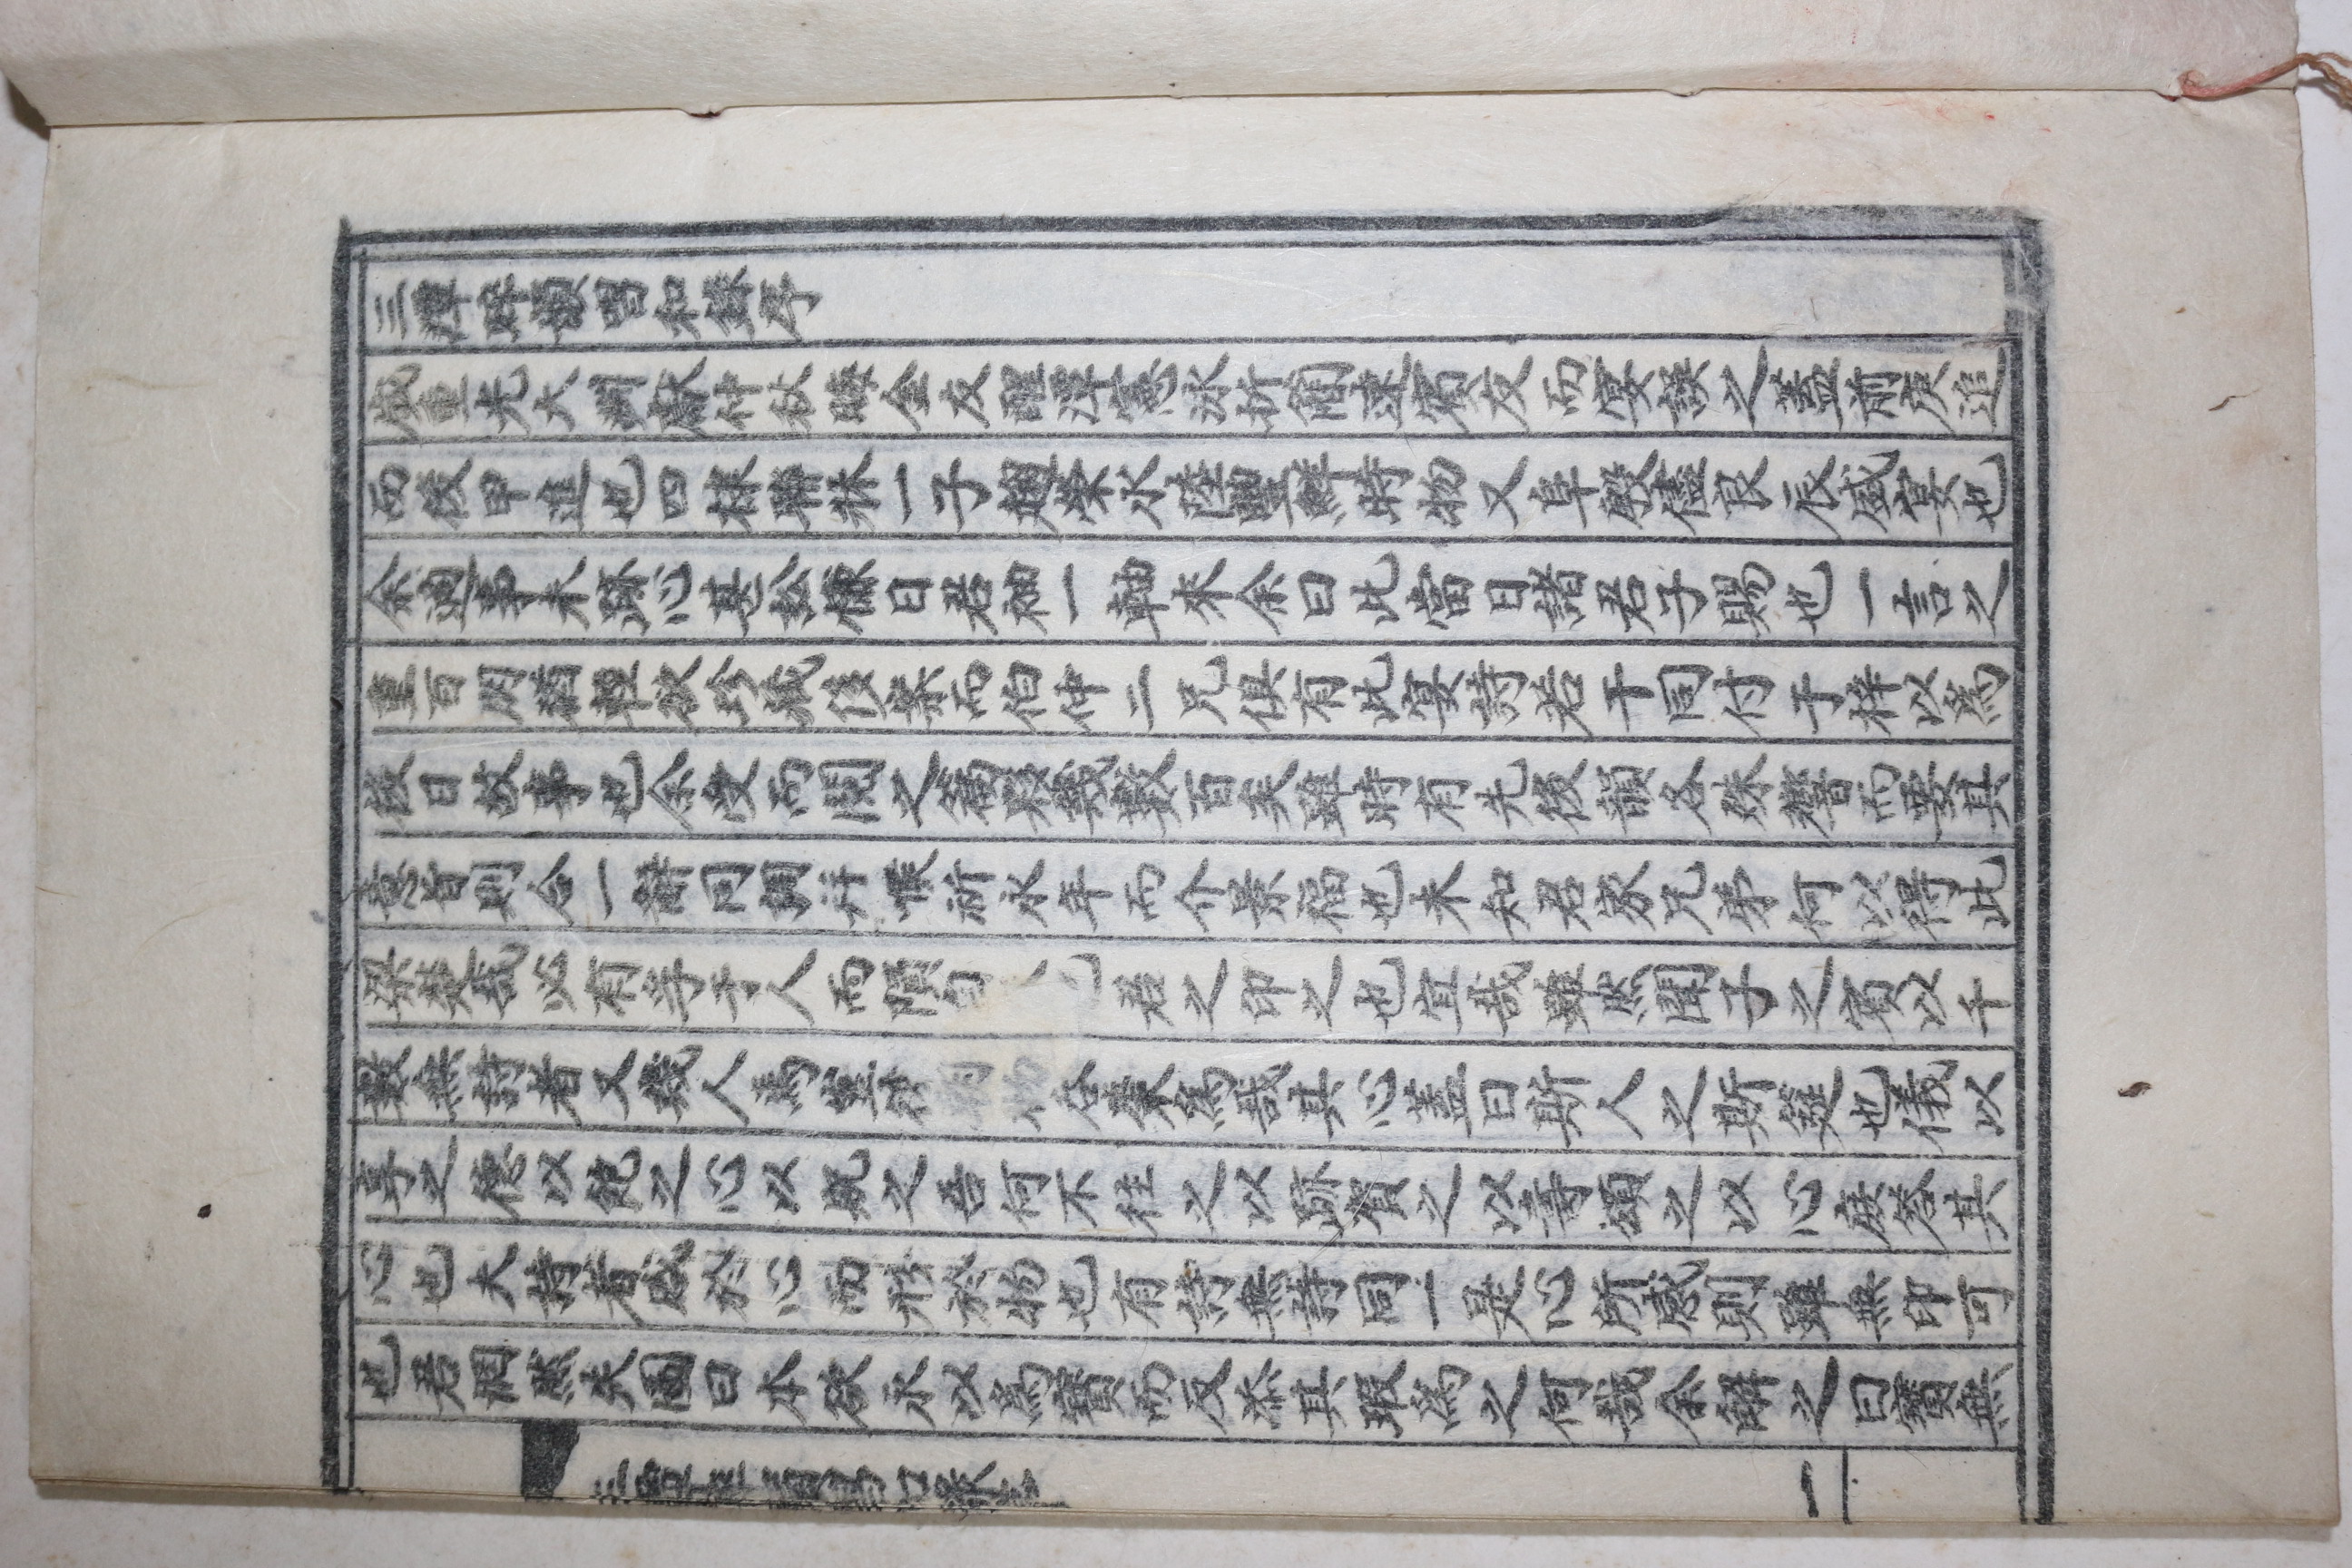 三潭晬韻唱和錄序
歲重光大淵獻仲秋晦金友醒潭憲泳折簡速賓友而宴誤之蓋前庚追
而後甲進也四棣聯牀一子趨榮水陸豐鮮時物又阜殷儘良辰盛宴也
余適事未跡心甚訟慊日君袖一軸來余曰此當日諸君子賜也一言之
重百朋猶輕欲珍藏侈案而伯仲二兄俱有此宴詩若干同付于梓以爲
後日故事也余受而閱之篇夥幾數百矣雖時有先後韻各殊響而要其
意旨則合一辭同調幷喉祈永年而介景福也未知君家兄弟何以得此
梁楚哉必有孚于人而隕 君之印之也宜哉雖然聞子之賓以千
數無詩者又幾人焉豈彼 物吞棗爲哉其心蓋曰斯人之斯筵也儀以
享之德以飽之心以貺之吾何不往之以跡賀之以壽頌之以心庶答其
心也夫詩者感於心而形於物也有詩無詩同一是心所感則雖無印可
也君惘然失圖曰本欲永以爲寶而反添其瑕爲之何哉余解之曰寶無
三潭晬韻唱和錄序
一